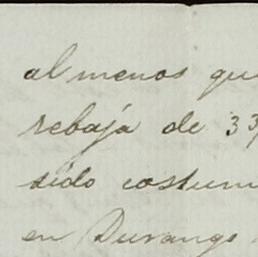 al menos qu
rebaja de 33
sido costum
en Durango